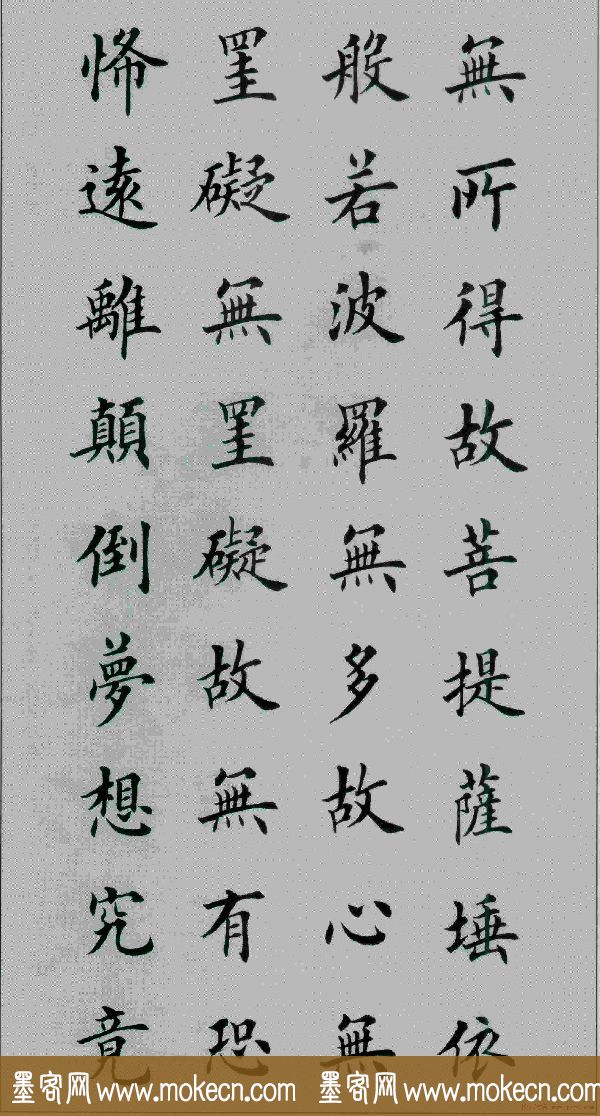 無所得故菩提薩埵依
般若波羅無多故心無
罣礙無罣礙故無有恐
悕遠離顛倒夢想究竟
墨客网 www.mokecn.com 墨客网 www.mokecn.com